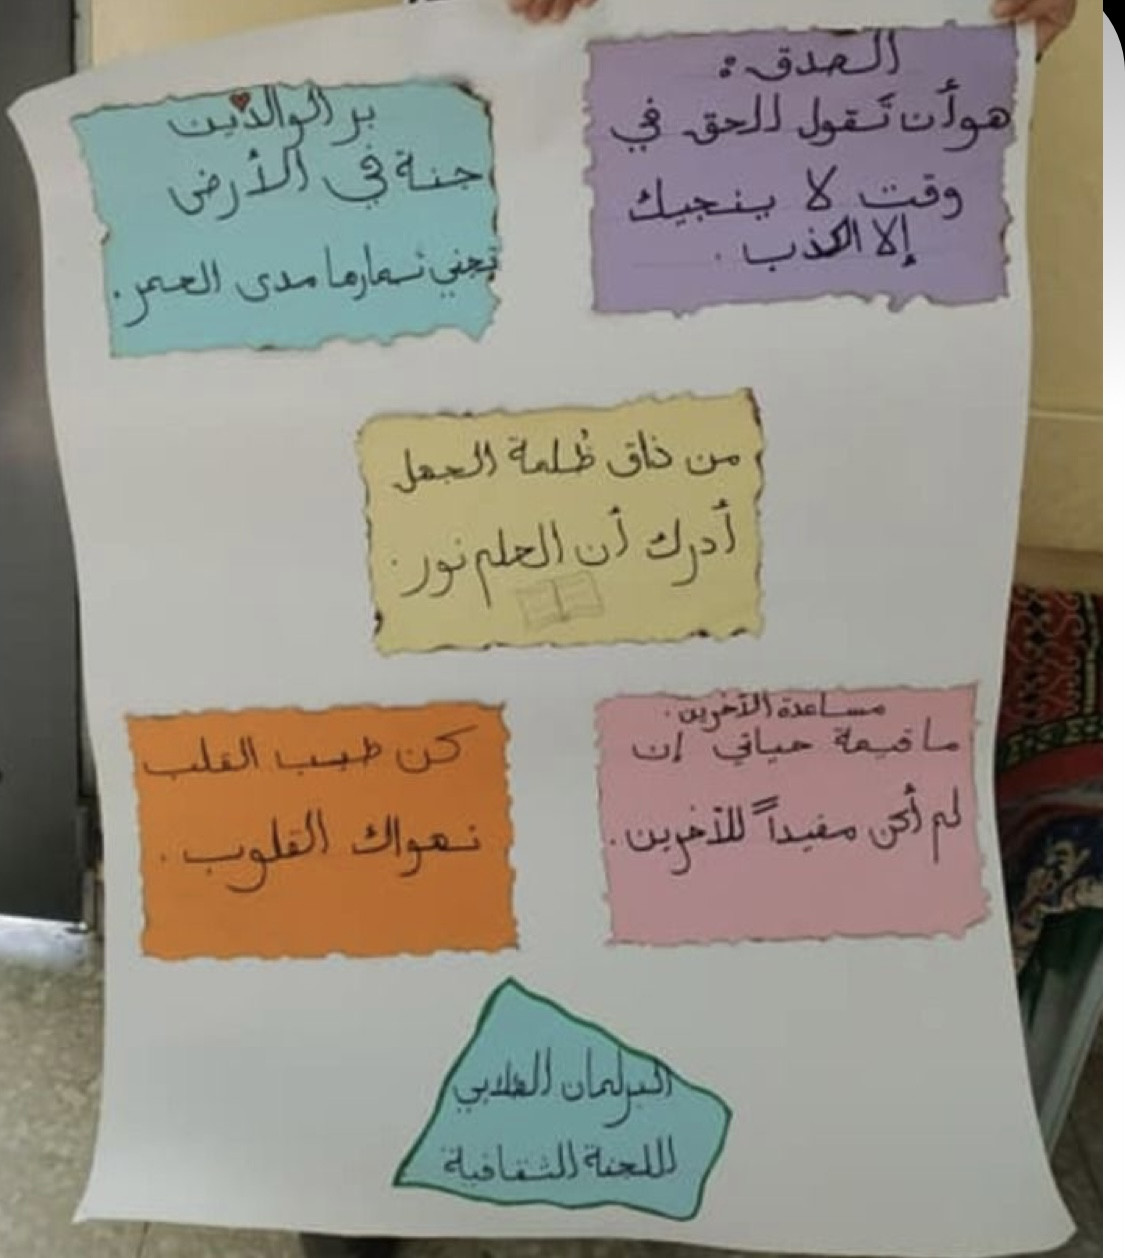 الصدق:
هو أن تَقول الحق في
وقت لا ينجيك
إلا الكذب.
بر الوالدين
جنة في الأرض
تجني ثمارها مدى العمر.
من ذاق ظُلمة الجهل
أدرك أن العلم نور.
مساعدة الآخرين.
ما قيمة حياتي إن
لم أكن مفيداً للآخرين.
كن طيب القلب
تهواك القلوب.
البرلمان الطلابي
اللجنة الثقافية